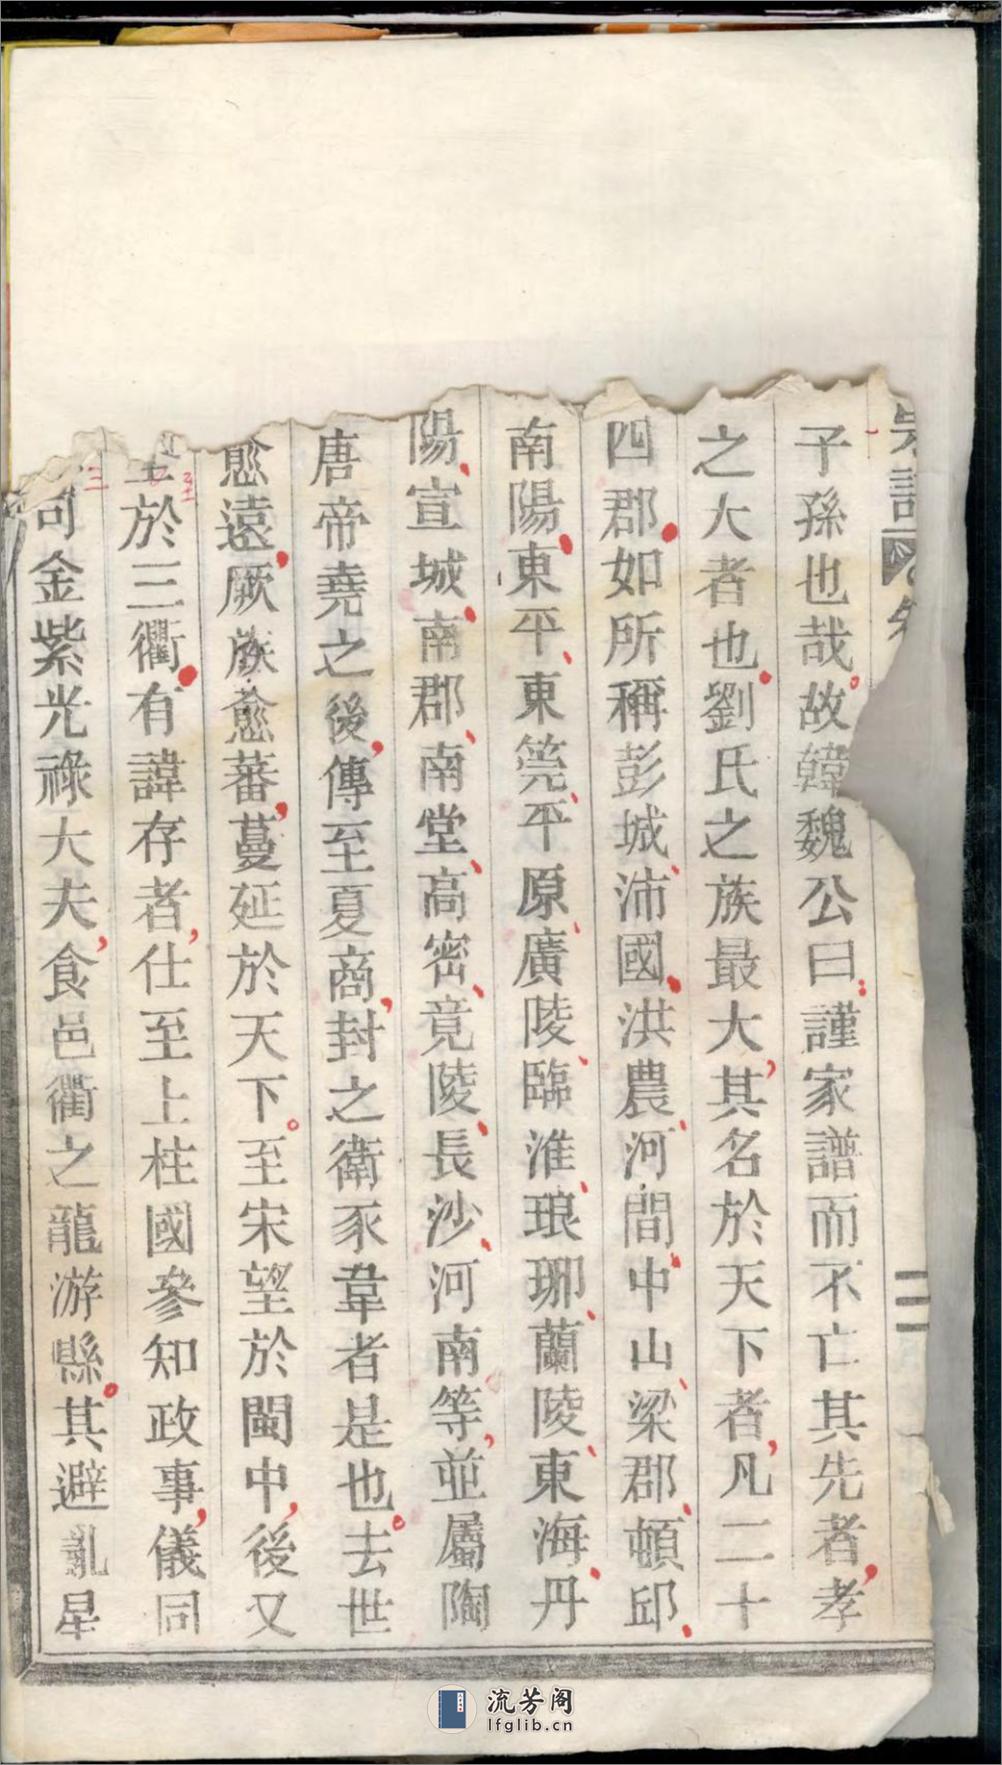 宗譜
二
子孫也哉。故韓魏公曰:謹家譜而不亡其先者,孝
之大者也。劉氏之族最大,其名於天下者,凡二十
四郡。如所稱彭城、沛國、洪農、河間、中山、梁郡、頓邱、
南陽、東平、東莞、平原、廣陵、臨淮、琅琊、蘭陵、東海、丹
陽、宣城、南郡、南堂、高密、竟陵、長沙、河南等,並屬陶
唐帝堯之後,傳至夏商,封之衛豕韋者是也。去世
愈遠,厥族愈蕃,蔓延於天下。至宋望於閩中,後又
至於三衢。有諱存者,仕至上柱國參知政事,儀同
三司金紫光祿大夫,食邑衢之龍游縣。其避亂星
流芳阁
lfglib.cn